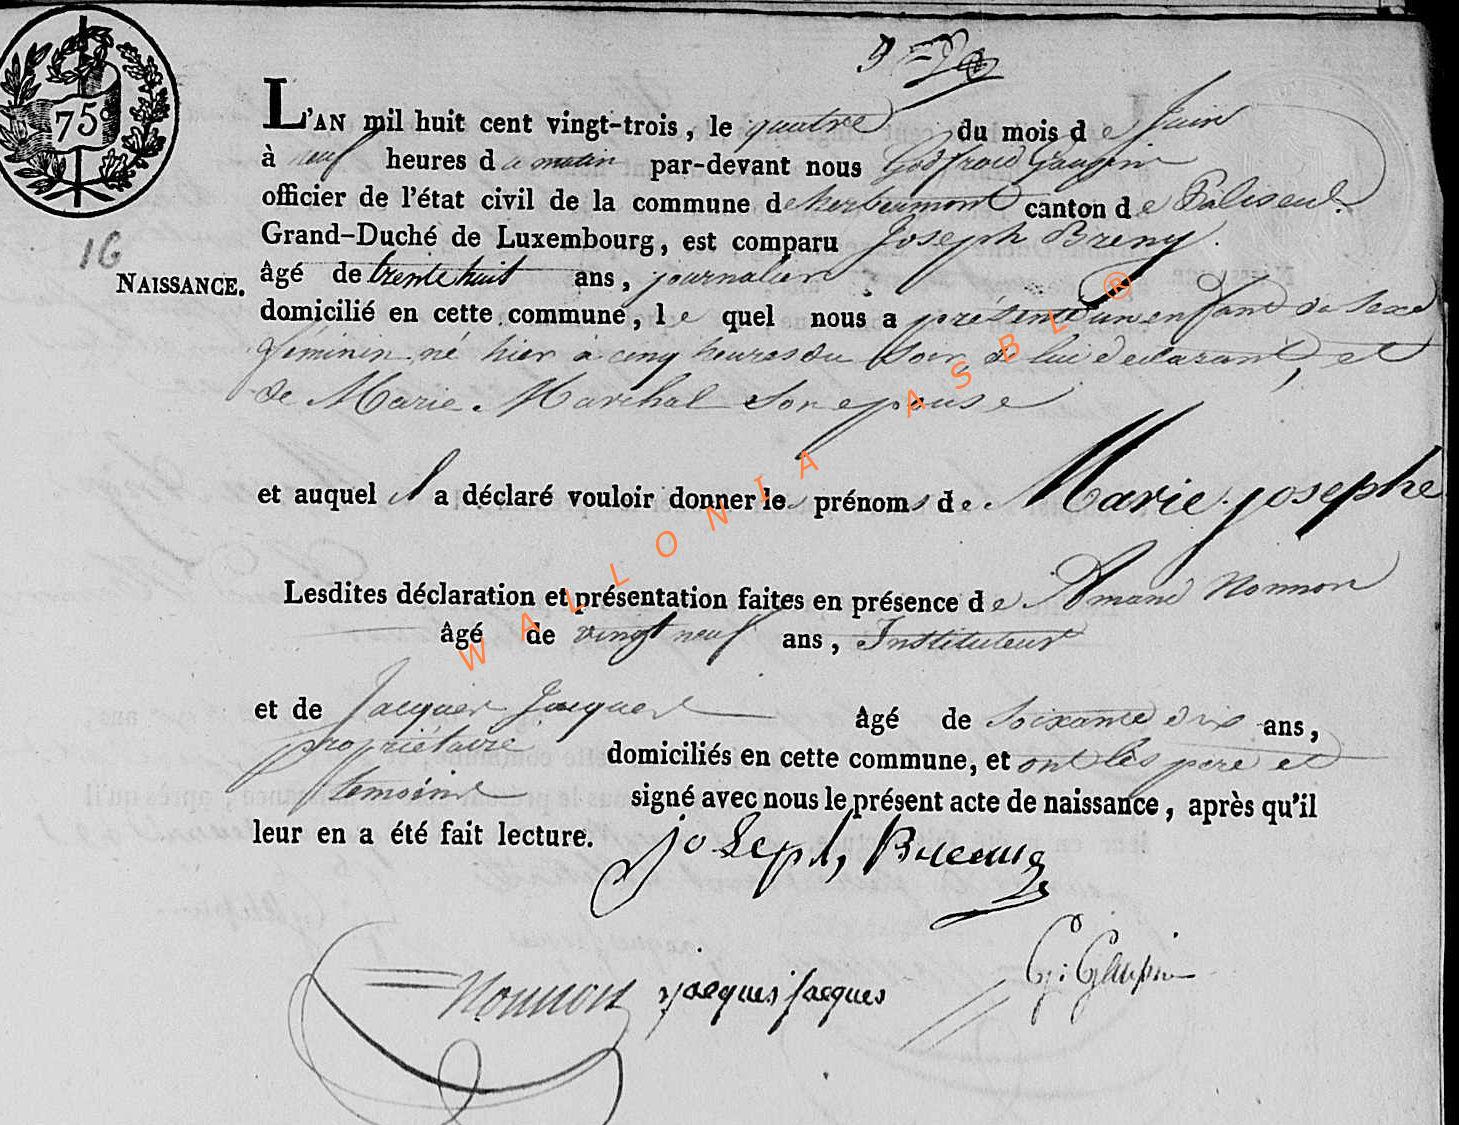 75c
16
NAISSANCE.
L'AN mil huit cent vingt-trois, le quatre du mois de Juin
à neuf heures du matin par-devant nous Godfroid Gaupin
officier de l'état civil de la commune de herbeumont canton de Paliseul
Grand-Duché de Luxembourg, est comparu Joseph Breny
âgé de trente huit ans, journalier
domicilié en cette commune, le quel nous a présenté un enfant du Sexe
féminin né hier à cinq heures du Soir, de lui déclarant, et
de Marie Marchal Son epouse
et auquel il a déclaré vouloir donner les prénoms de Marie josephe
Lesdites déclaration et présentation faites en présence de Amand Nonnon
âgé de vingt neuf ans, Instituteur
et de Jacques Jacques âgé de Soixante dix ans,
propriétaire domiciliés en cette commune, et ont les pere et
temoins signé avec nous le présent acte de naissance, après qu'il
leur en a été fait lecture.
joseph
Nonnon jacques jacques G: Gaupin
WALLONIA ASBL ®